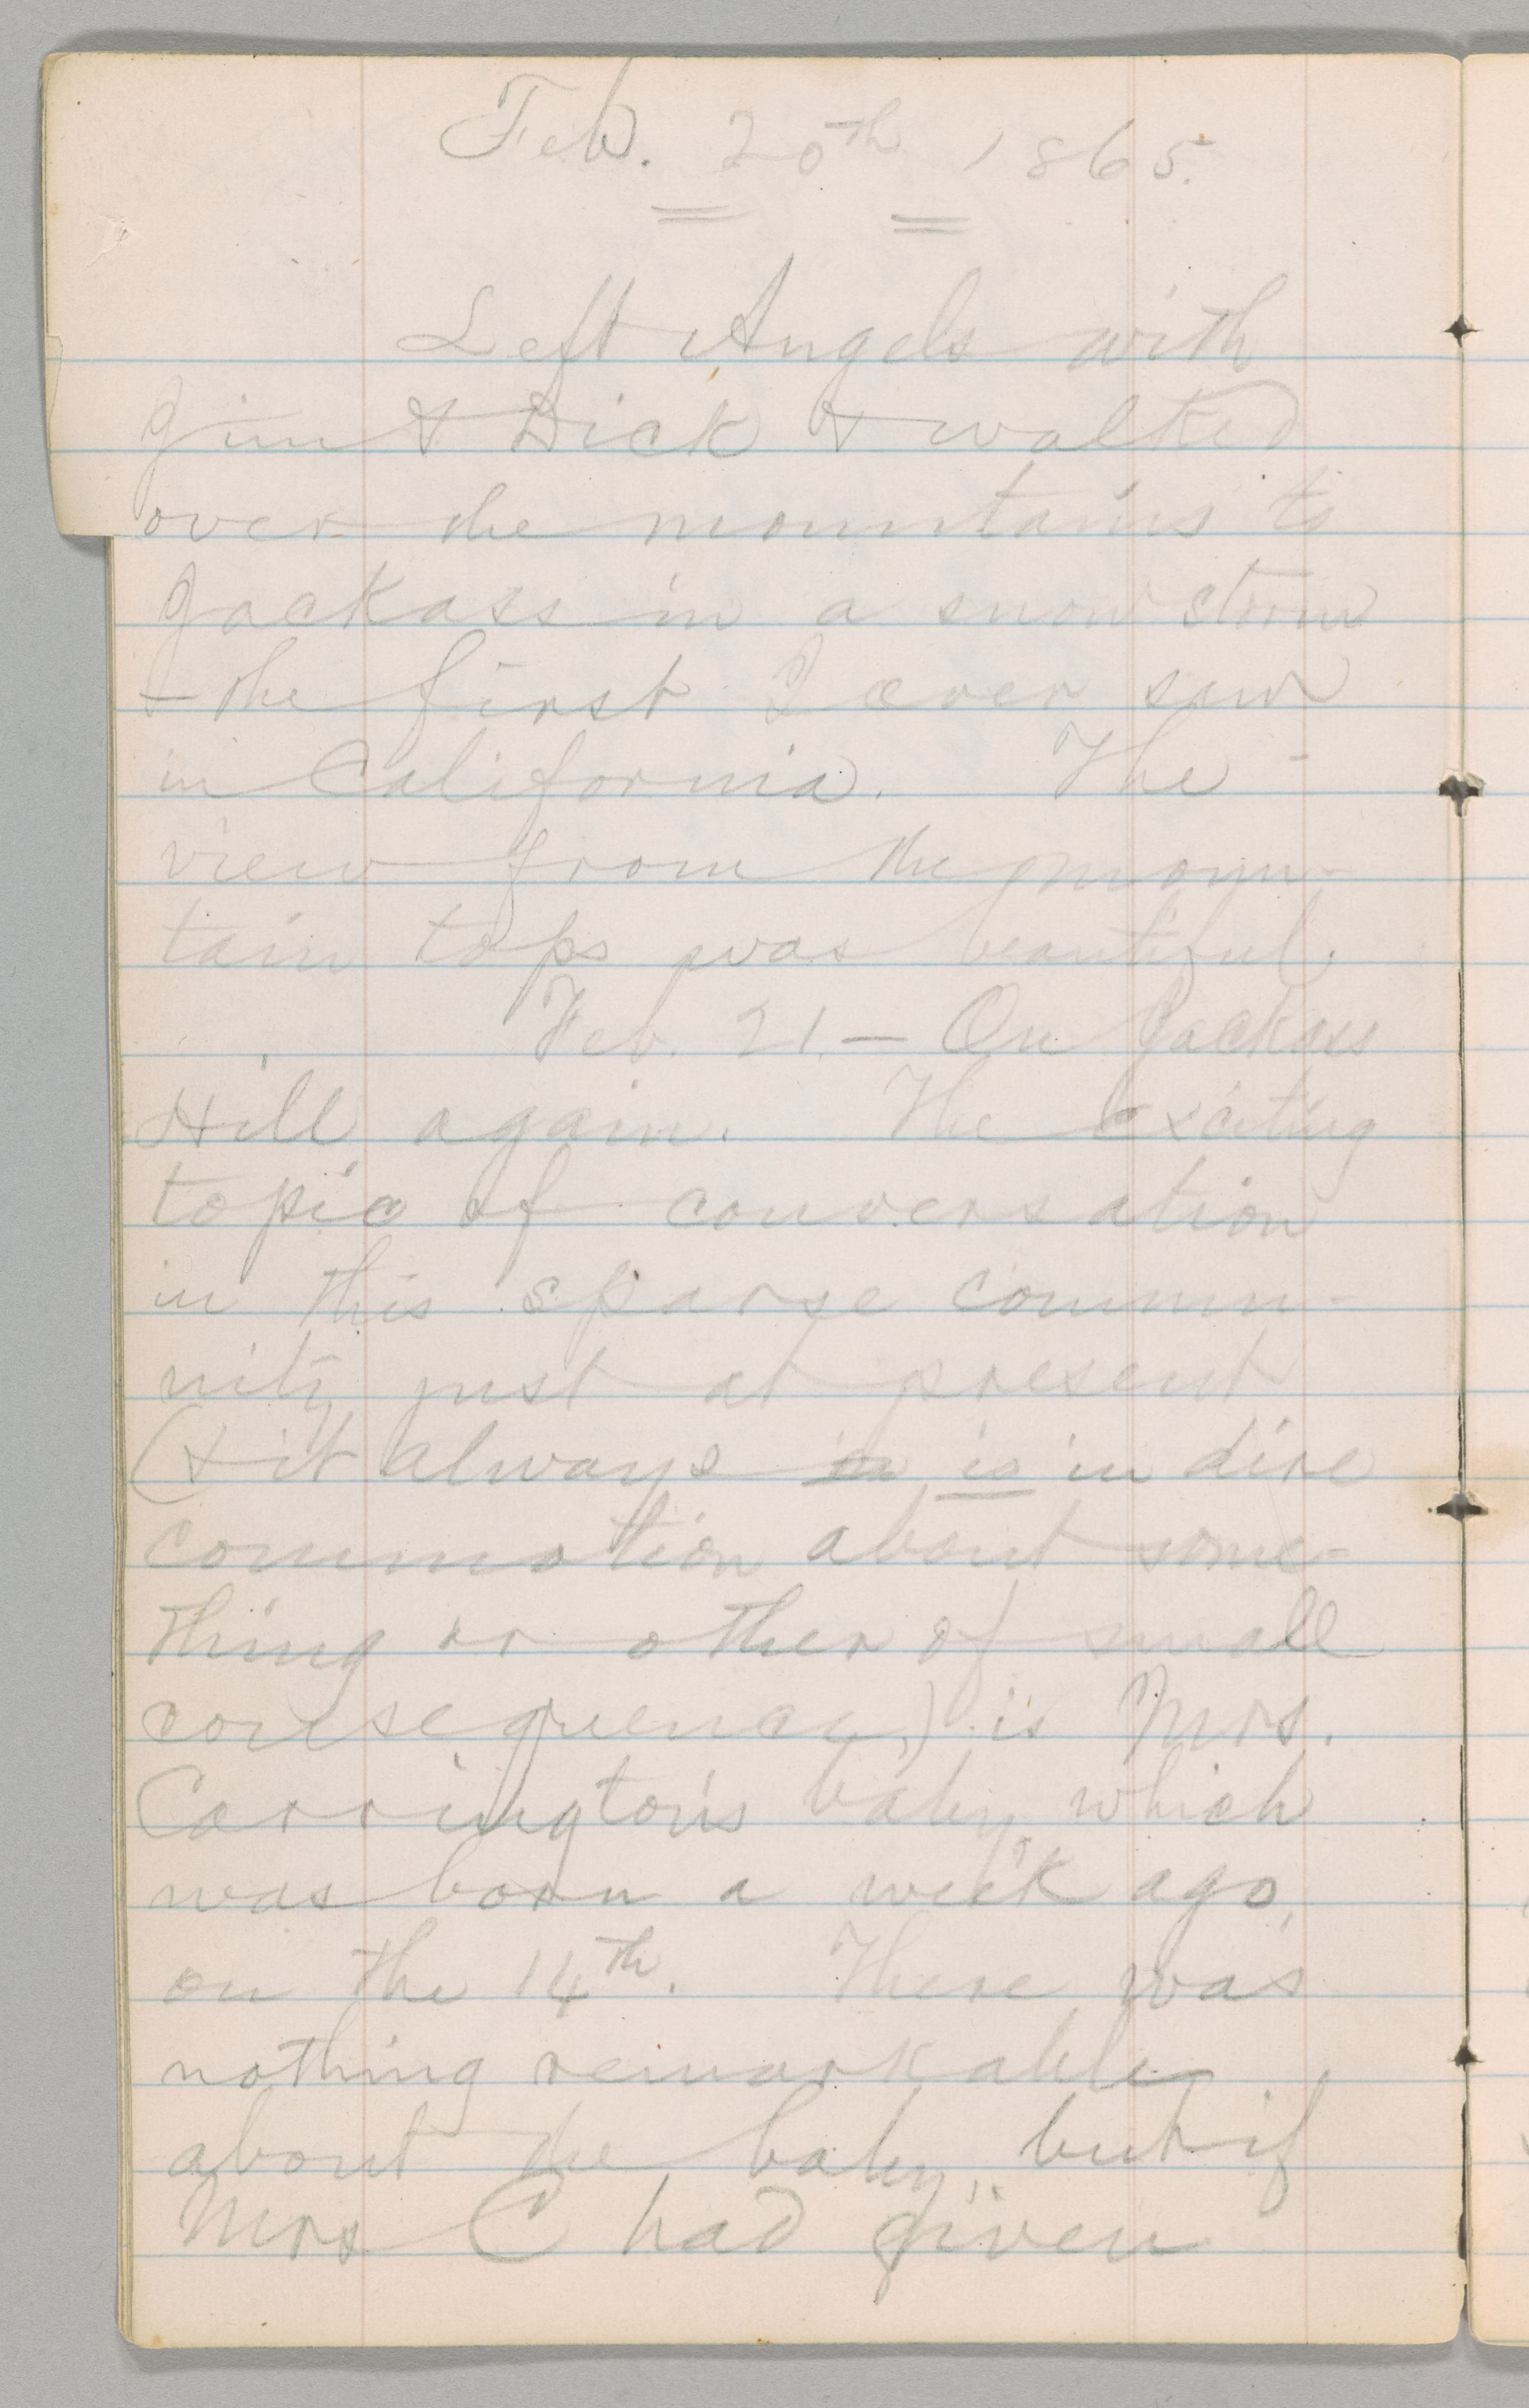 Feb. 20th 1865.
Left Angels with
Jim & Dick & walked
over the mountains to
Jackass in a snow storm
— the first I ever saw
in California. The
view from the moun-
tain tops was beautiful.
Feb. 21. — On Jackass
Hill again. The exciting
topic of conversation
in this sparse commu-
nity just at present
(& it always in is in dire
commotion about some-
thing or other of small
consequence,) is Mrs.
Carrington's baby, which
was born a week ago,
on the 14th. There was
nothing remarkable
about the baby, but if
Mrs C had given